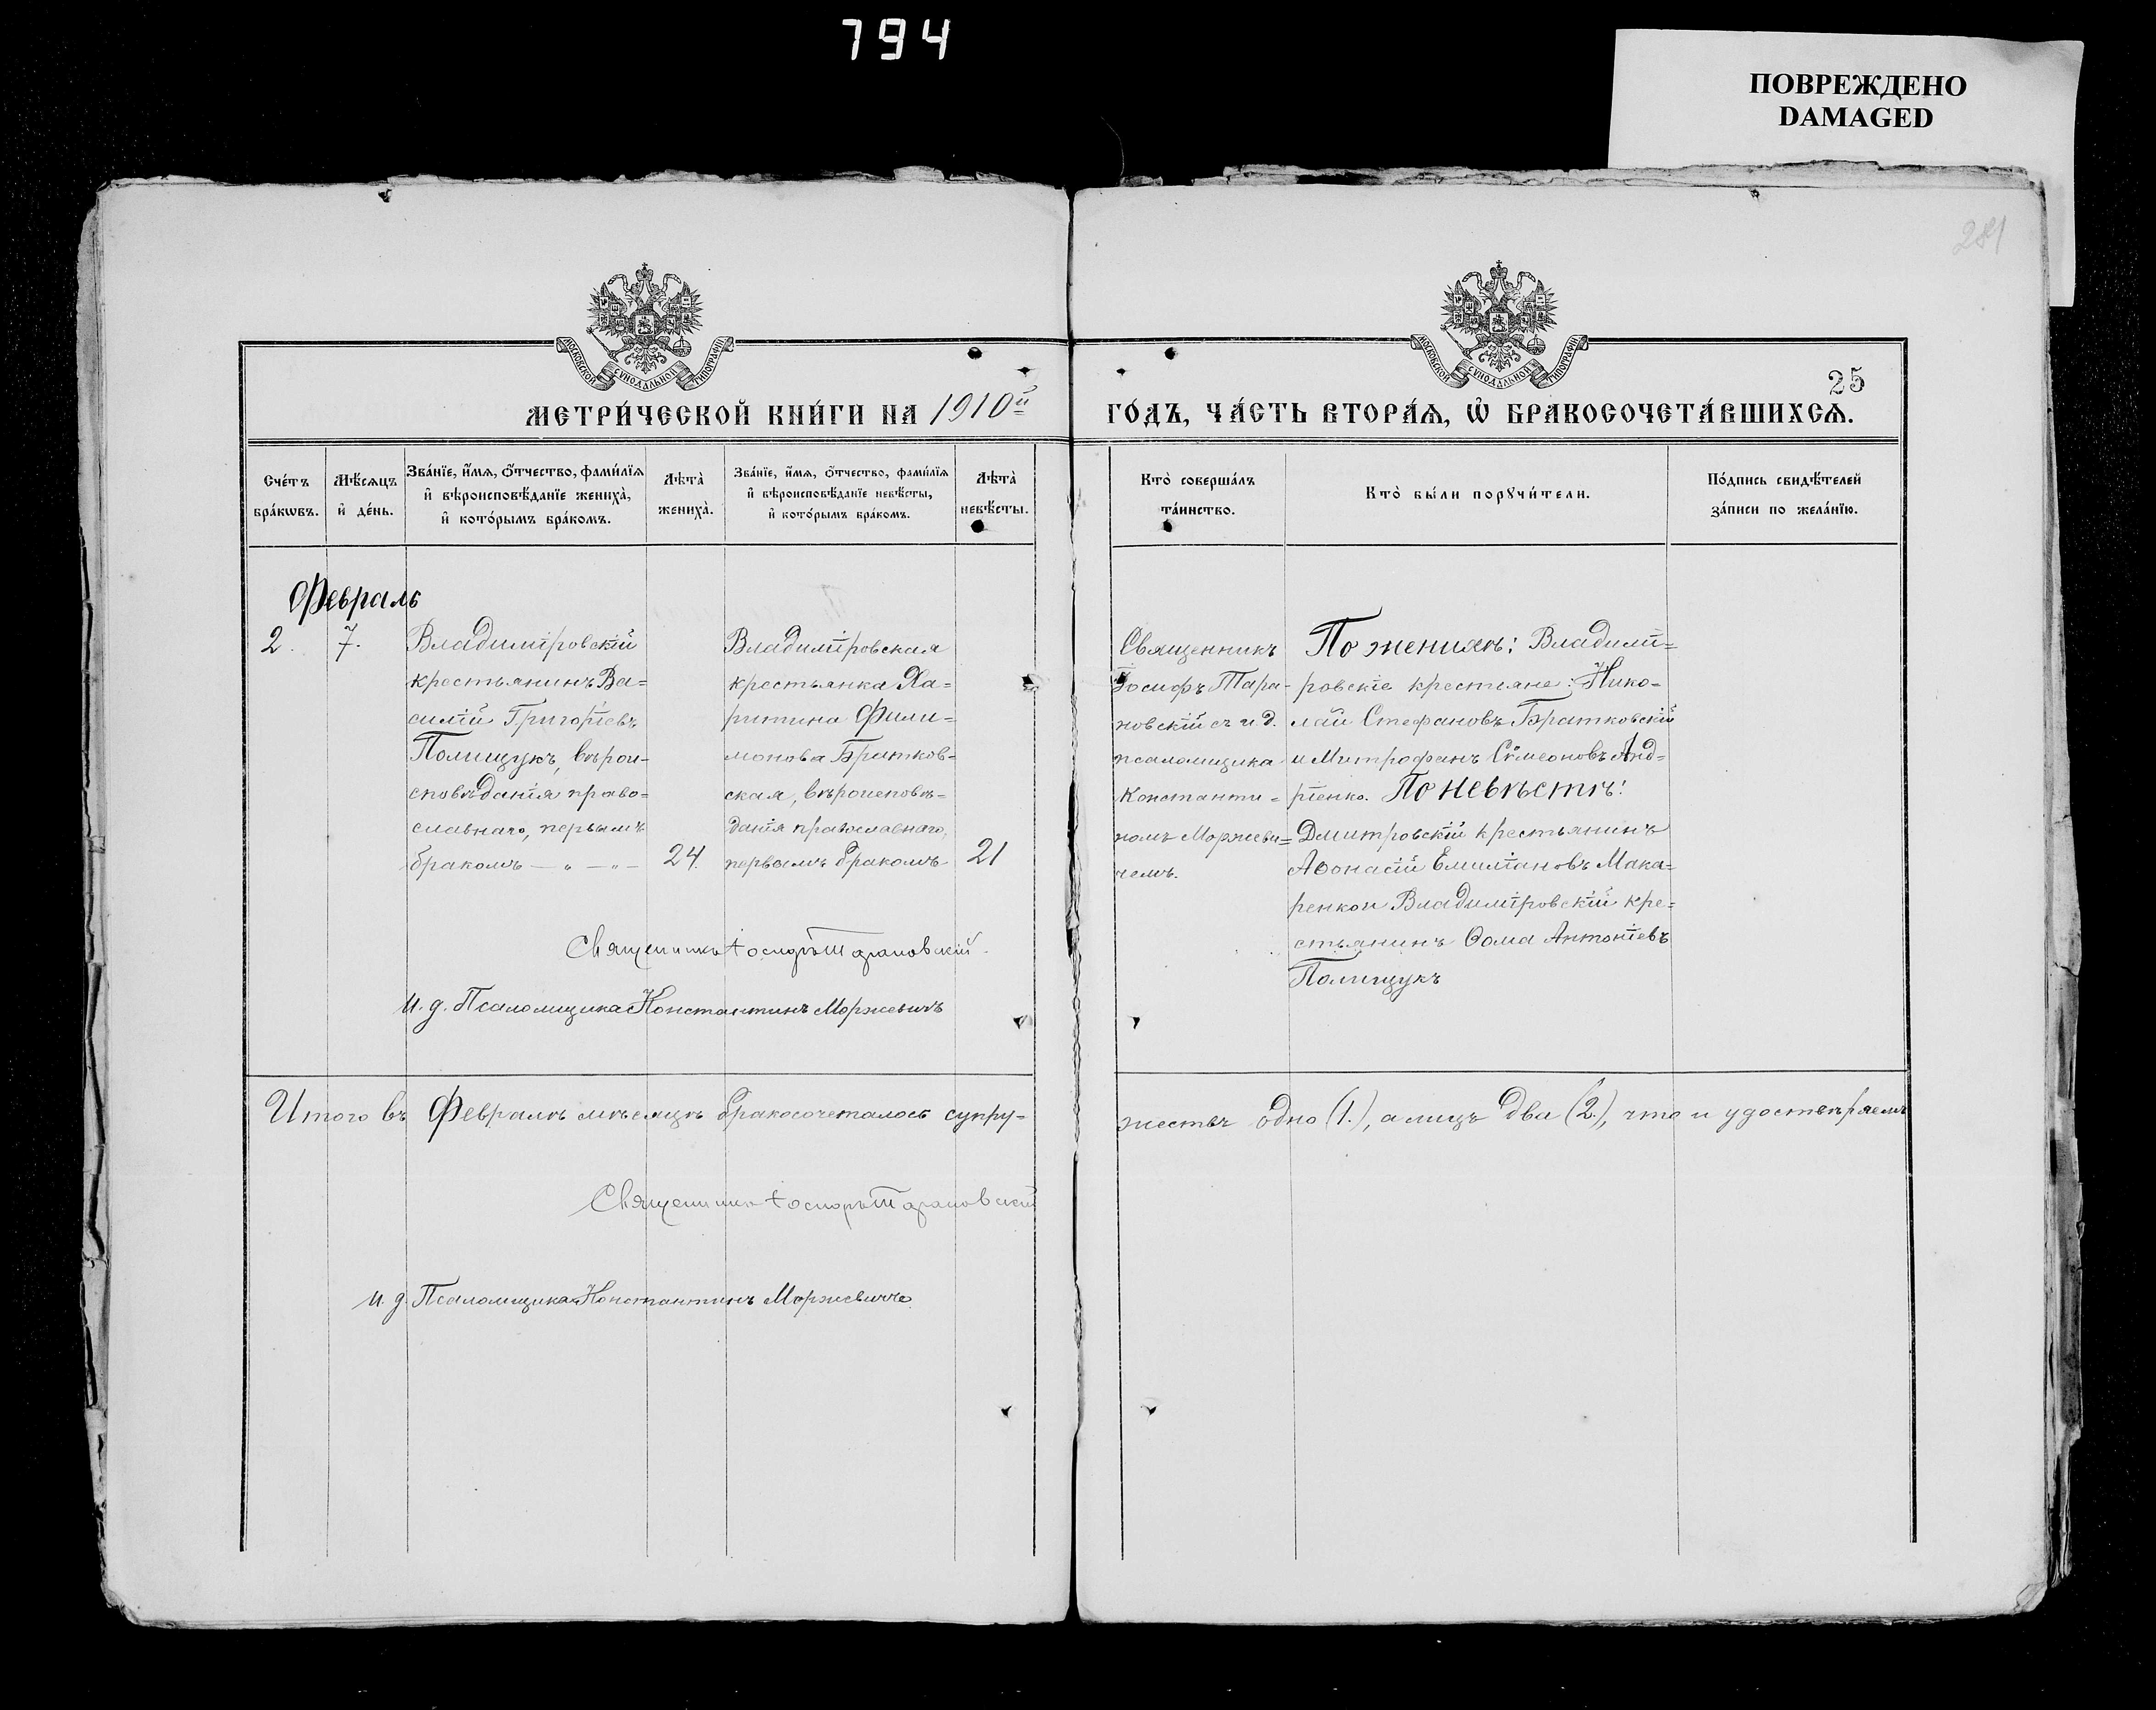 794
ПОВРЕЖДЕНО
DAMAGED
281
МОСКОВСКОЙ СѴНОДАЛЬНОЙ ТИПОГРАФІИ
МОСКОВСКОЙ СѴНОДАЛЬНОЙ ТИПОГРАФІИ
25
МЕТРИ́ЧЕСКОЙ КНИ́ГИ НА 1910й
ГО́ДЪ, ЧА́СТЬ ВТОРА́Ѧ, Ѡ҆ БРАКОСОЧЕТА́ВШИХСѦ.
Сче́тъ
бра́кѡвъ.
Мѣ́сѧцъ
и҆ де́нь.
Зва́нїе, и҆́мѧ, ѻ҆́тчество, фами́лїѧ
и҆ вѣроисповѣ́данїе жениха̀,
и҆ кото́рымъ бра́комъ.
Лѣта̀
жениха̀.
Зва́нїе, и҆́мѧ, ѻ҆́тчество, фами́лїѧ
и҆ вѣроисповѣ́данїе невѣ́сты,
и҆ кото́рымъ бра́комъ.
Лѣта̀
невѣ́сты.
Кто̀ соверша́лъ
та́инство.
Кто̀ бы́ли порꙋчи́тели.
По́дпись свидѣ́телей
за́писи по жела́нїю.
Февраль
2. 7.
Владиміровскій
крестьянинъ Ва=
силій Григоріевъ
Полищукъ, верои=
споведанія право=
славнаго, первымъ
бракомъ — „ — „ —
24.
Владимировская
крестьянка Ха=
ритина Фили=
монова Братков=
ская, вѣроисповѣ=
данія православнаго,
первымъ бракомъ
21
Священникъ
Іосифъ Тара-
новскій съ и.д.
псаломщика
Константи=
номъ Моржеви=
чемъ.
По женихѣ: Владими=
ровскіе крестьяне: Нико=
лай Стефановъ Братковскій
и Митрофанъ Сѵмеоновъ Анд=
ріенко. По невѣстѣ:
Дмитровскій крестьянинъ
Аѳонасій Емиліановъ Мака=
ренко и Владиміровскій кре=
стьянинъ Ѳома Антоніевъ
Полищукъ
Священникъ Іосифъ Тарановскій
И. д. Псаломщика Константинъ Моржевичъ
Итого въ Февралѣ мѣсяцѣ бракосочеталось супру=
жествъ одно (1.), а лицъ два (2.), что и удостовѣряемъ
Священникъ Іосифъ Тарановскій
И. д. Псаломщика Константинъ Моржевичъ